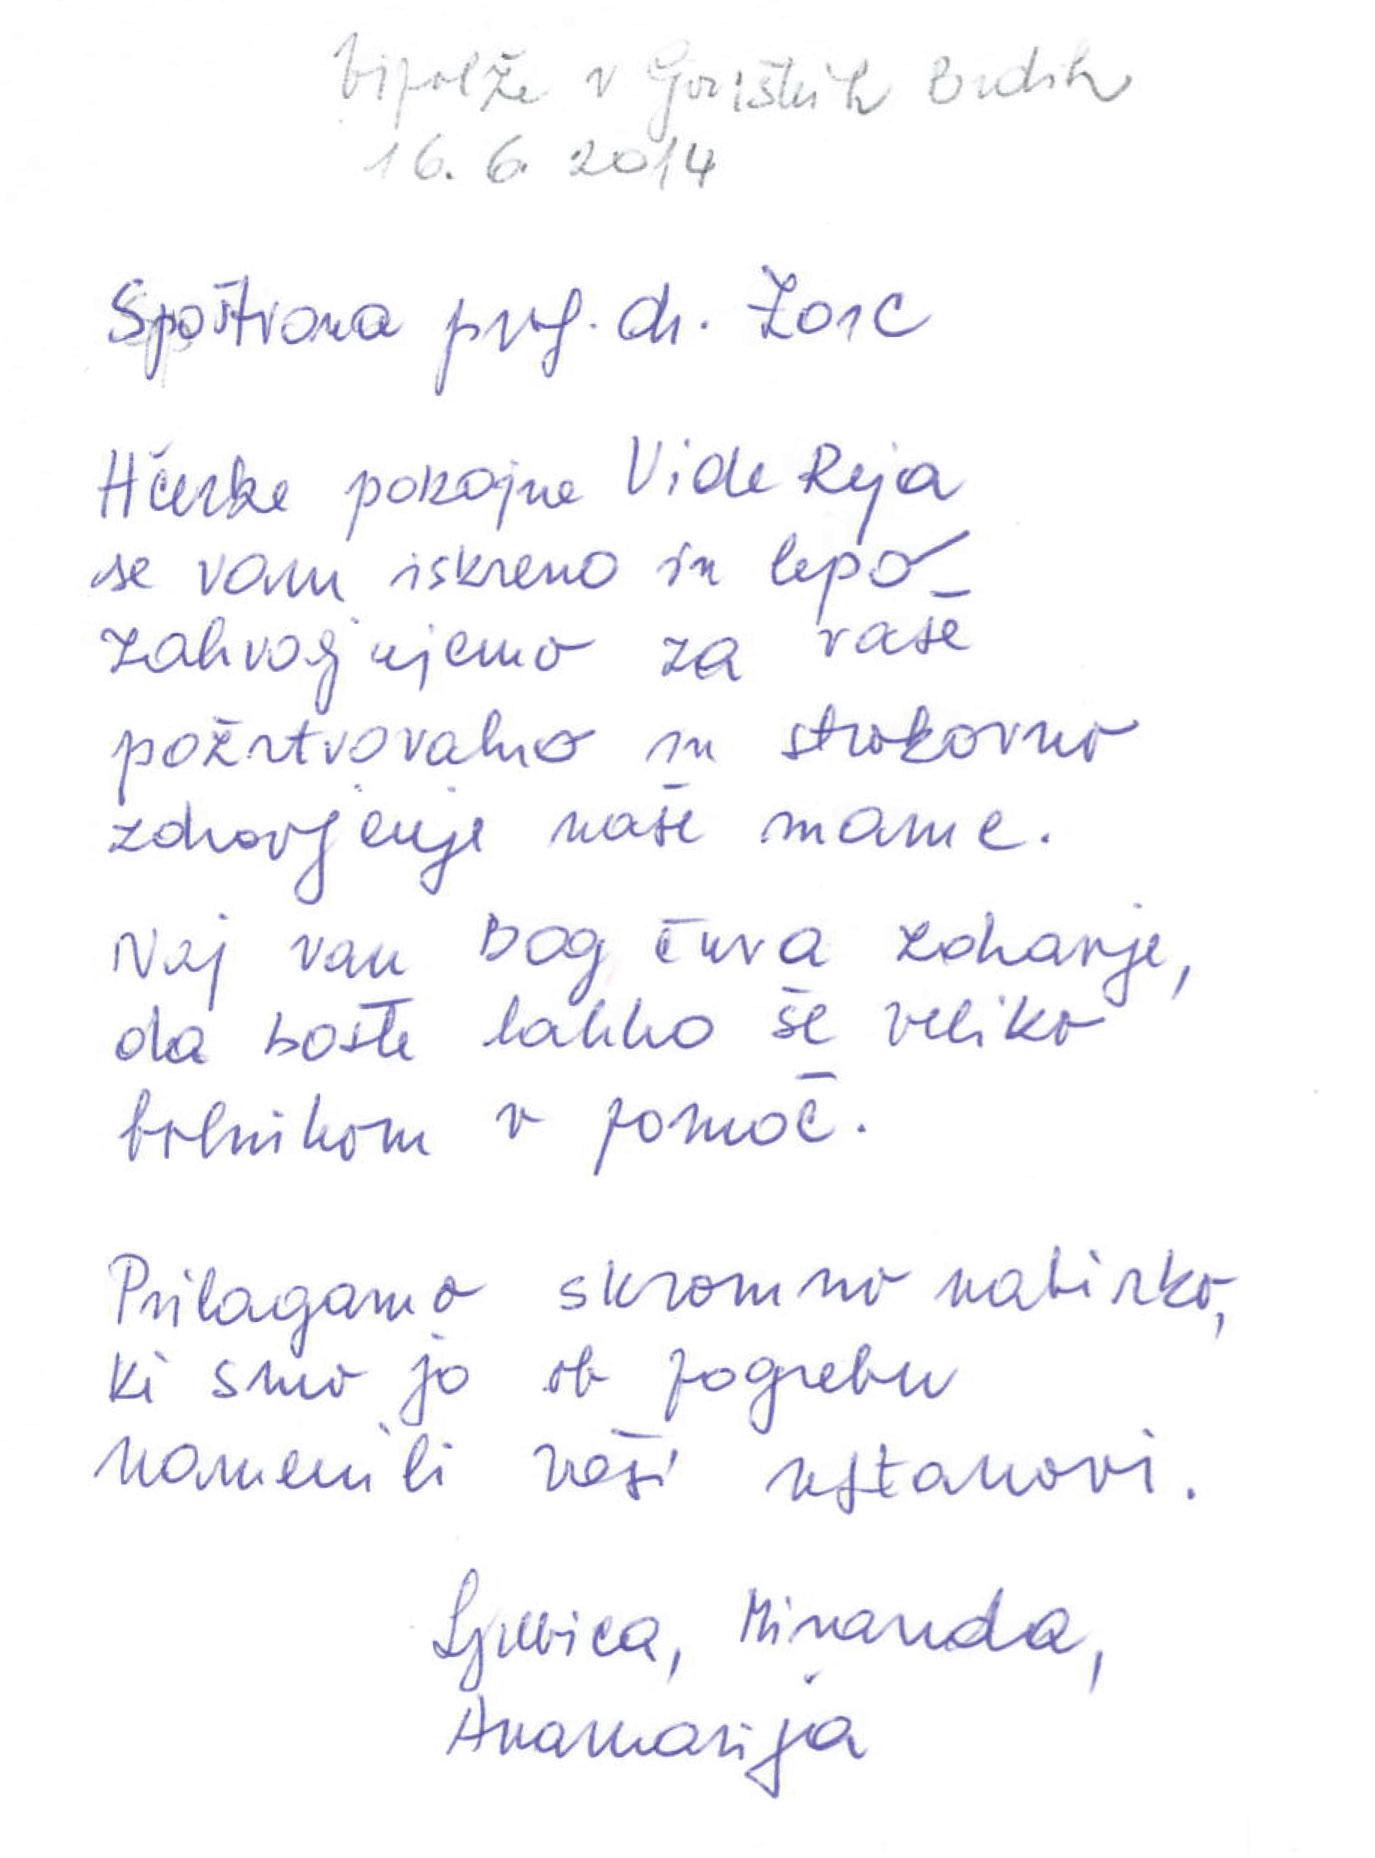 Vipolže v Goriških Brdih
16. 6. 2014
Spoštovana prof. dr. Zorc
Hčerke pokojne Vide Reja
se vam iskreno in lepo
zahvaljujemo za vaše
požrtvovalno in strokovno
zdravljenje naše mame.
Naj vam Bog čuva zdravje,
da boste lahko še veliko
bolnikom v pomoč.
Prilagamo skromno nabirko,
ki smo jo ob pogrebu
namenili vaši ustanovi.
Ljubica, Miranda,
Anamarija